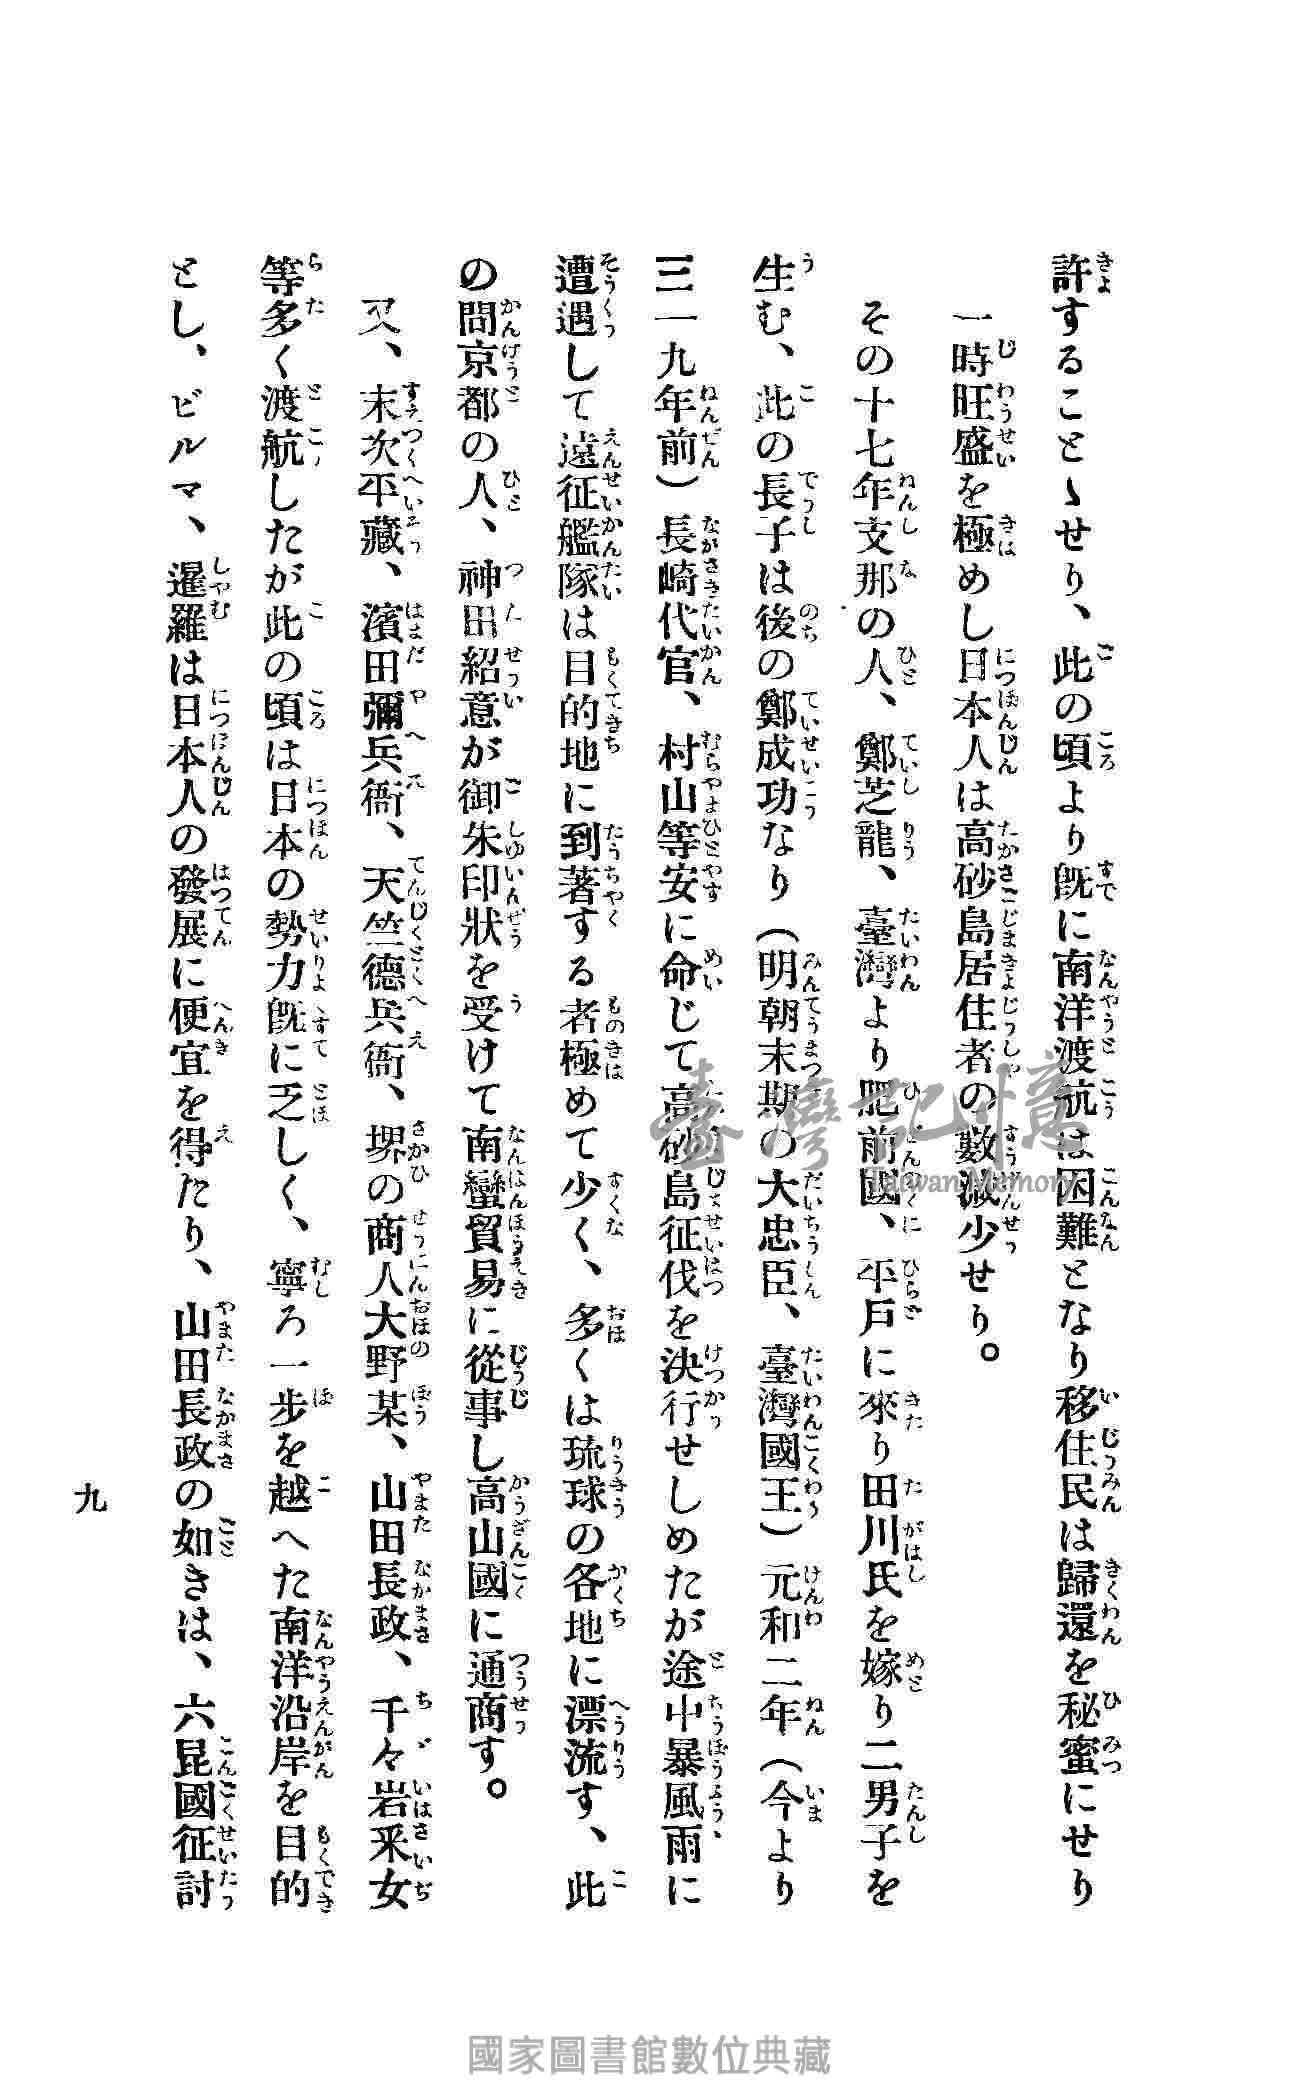 許することゝせり、此の頃より旣に南洋渡航は困難となり移住民は歸還を秘蜜にせり
一時旺盛を極めし日本人は高砂島居住者の數減少せり。
その十七年支那の人、鄭芝龍、臺灣より肥前國、平戶に來り田川氏を嫁り二男子を
生む、此の長子は後の鄭成功なり(明朝末期の大忠臣、臺灣國王)元和二年(今より
三一九年前)長崎代官、村山等安に命じて高砂島征伐を決行せしめたが途中暴風雨に
遭遇して遠征艦隊は目的地に到著する者極めて少く、多くは琉球の各地に漂流す、此
の間京都の人、神田紹意が御朱印狀を受けて南蠻貿易に從事し高山國に通商す。
又、末次平藏、濱田彌兵衞、天竺德兵衞、堺の商人大野某、山田長政、千々岩釆女
等多く渡航したが此の頃は日本の勢力旣に乏しく、寧ろ一步を越へた南洋沿岸を目的
とし、ビルマ、暹羅は日本人の發展に便宜を得たり、山田長政の如きは、六昆國征討
九
臺灣記憶
Taiwan Memory
國家圖書館數位典藏